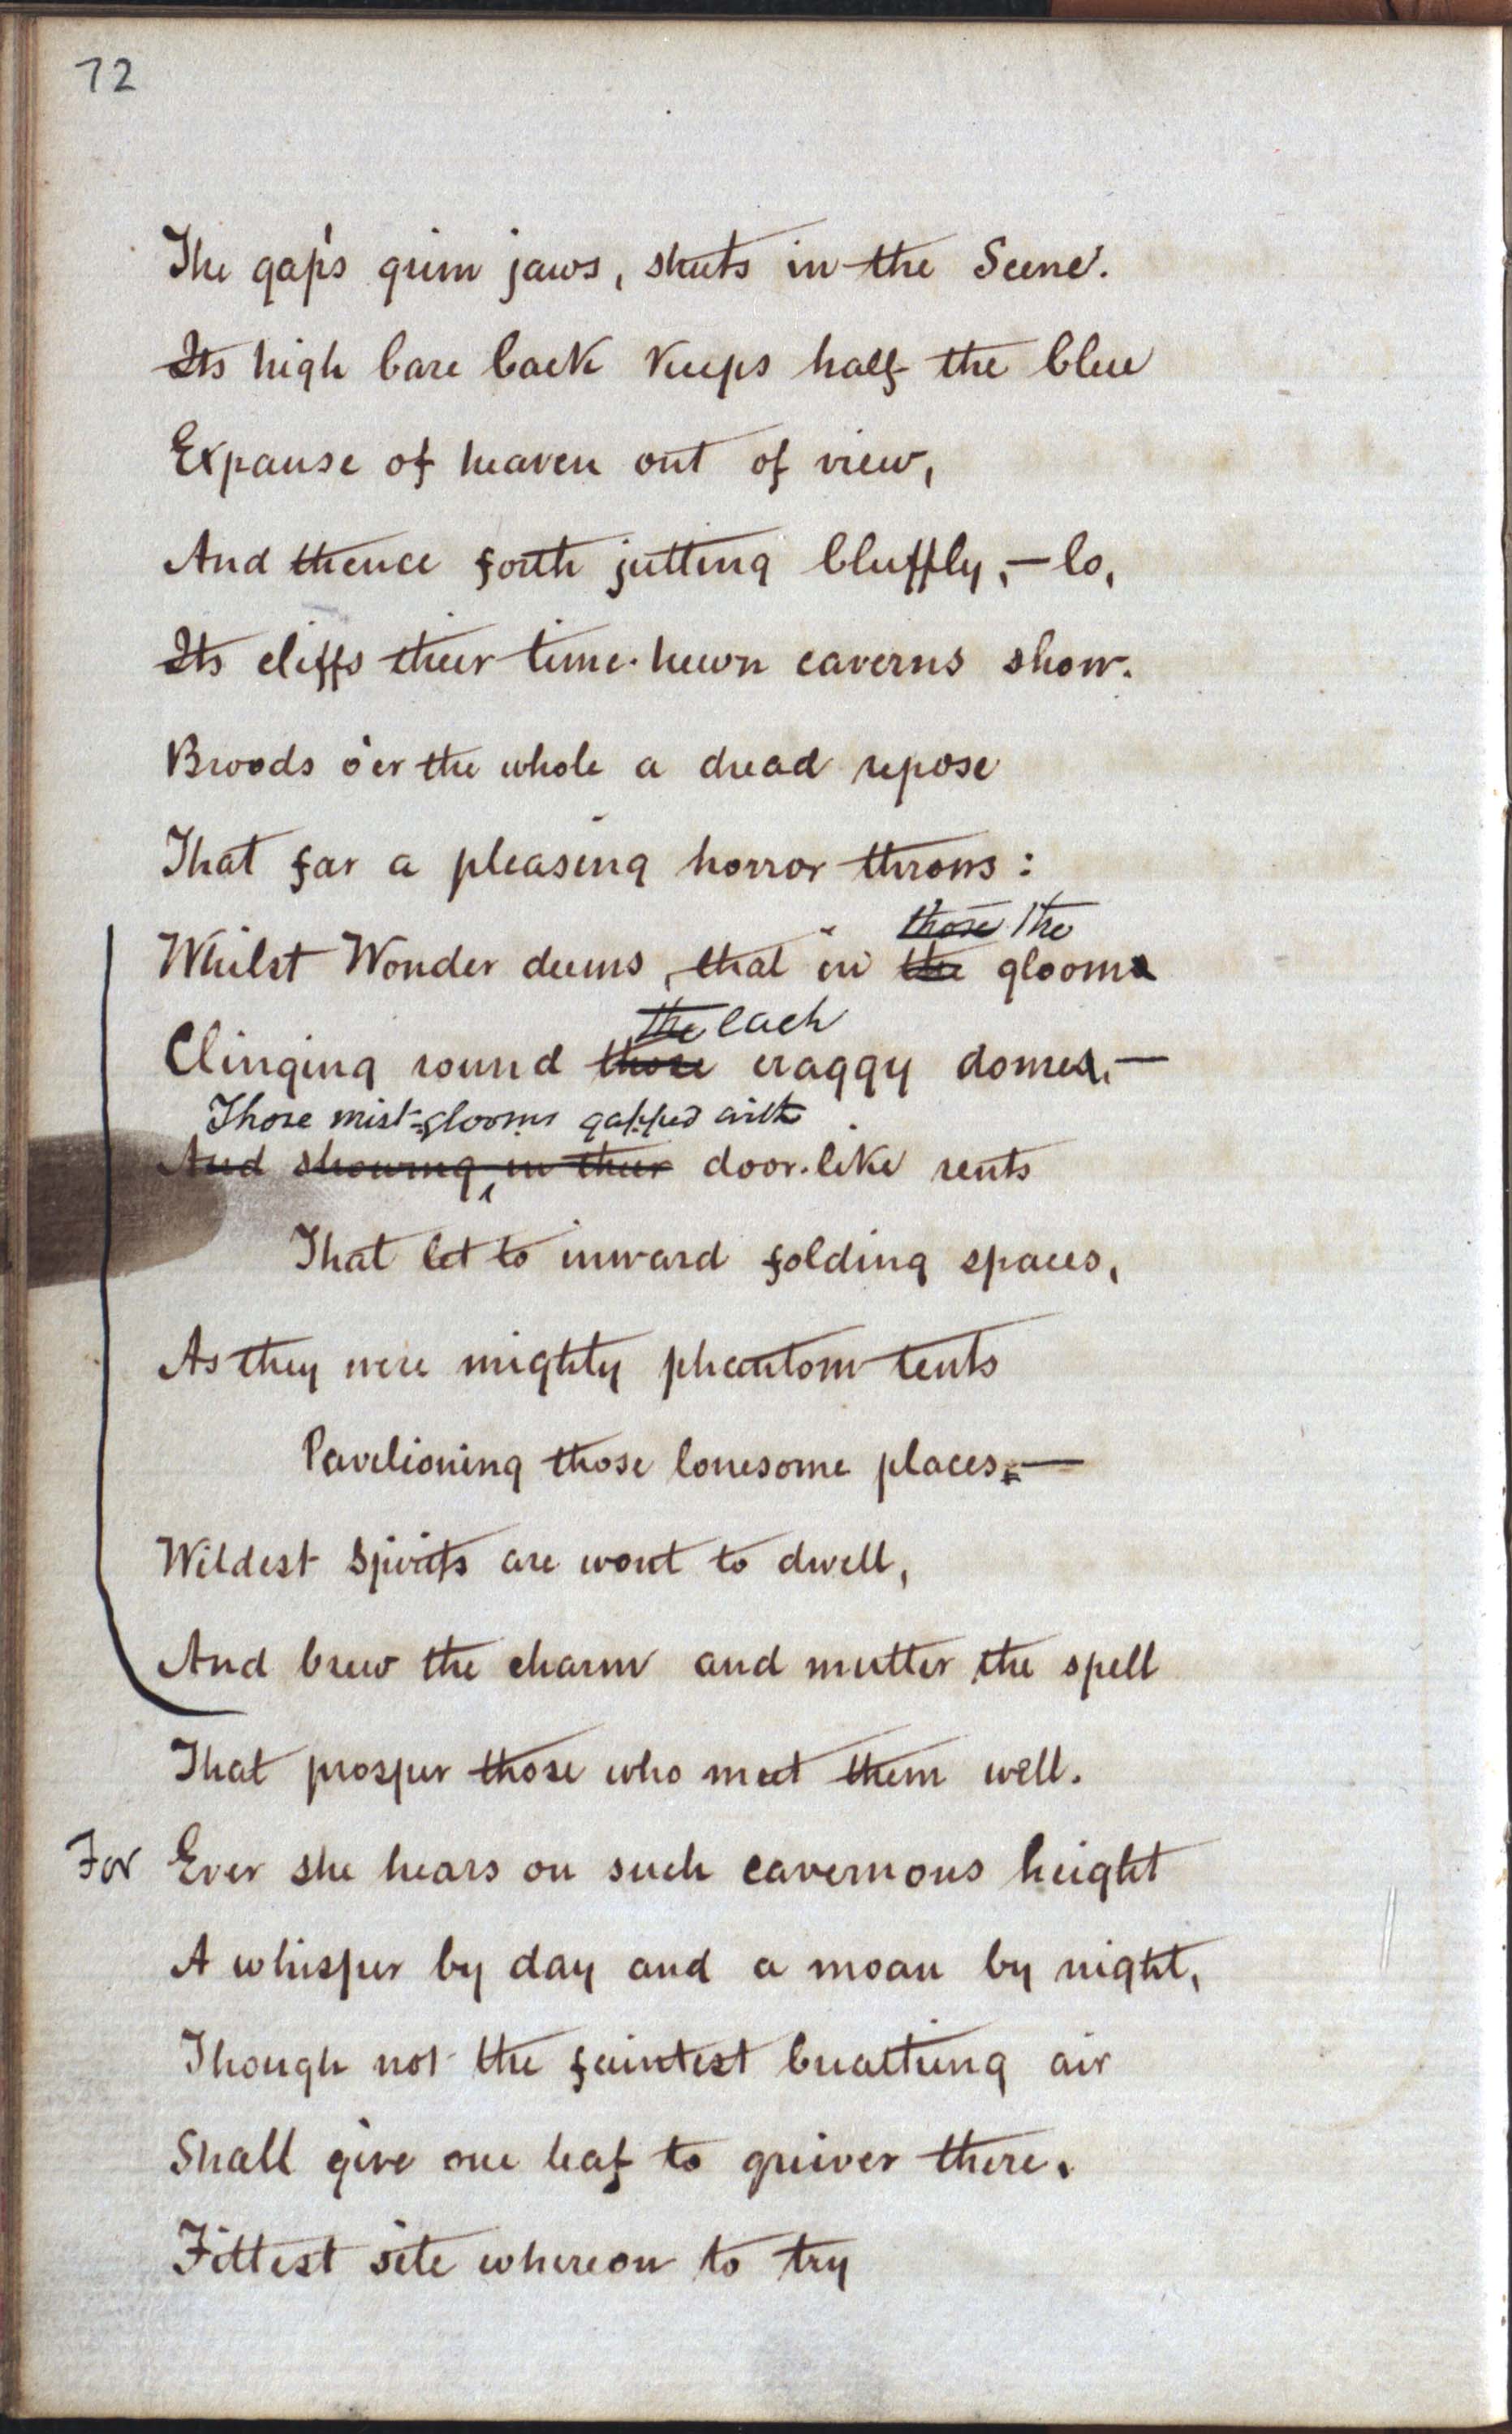 72
The gap's grim jaws, shuts in the Scene.
Its high bare back keeps half the blue
Expanse of heaven out of view,
And thence forth jutting bluffly,—lo,
Its cliffs their time-hewn caverns show.
Broods o'er the whole a dread repose
That far a pleasing horror throws:
those the
Whilst Wonder deems, that in the gloom
the each
Clinging round those craggy domes,—
Those mist-glooms gapped with
And showing in their door-like rents
That let to inward folding spaces,
As they were mighty phantom tents
Pavilioning those lonesome places,—
Wildest Spirits are wont to dwell,
And brew the charm and mutter the spell
That prosper those who meet them well.
For Ever she hears on such cavernous height
A whisper by day and a moan by night,
Though not the faintest breathing air
Shall give one leaf to quiver there.
Fittest site whereon to try